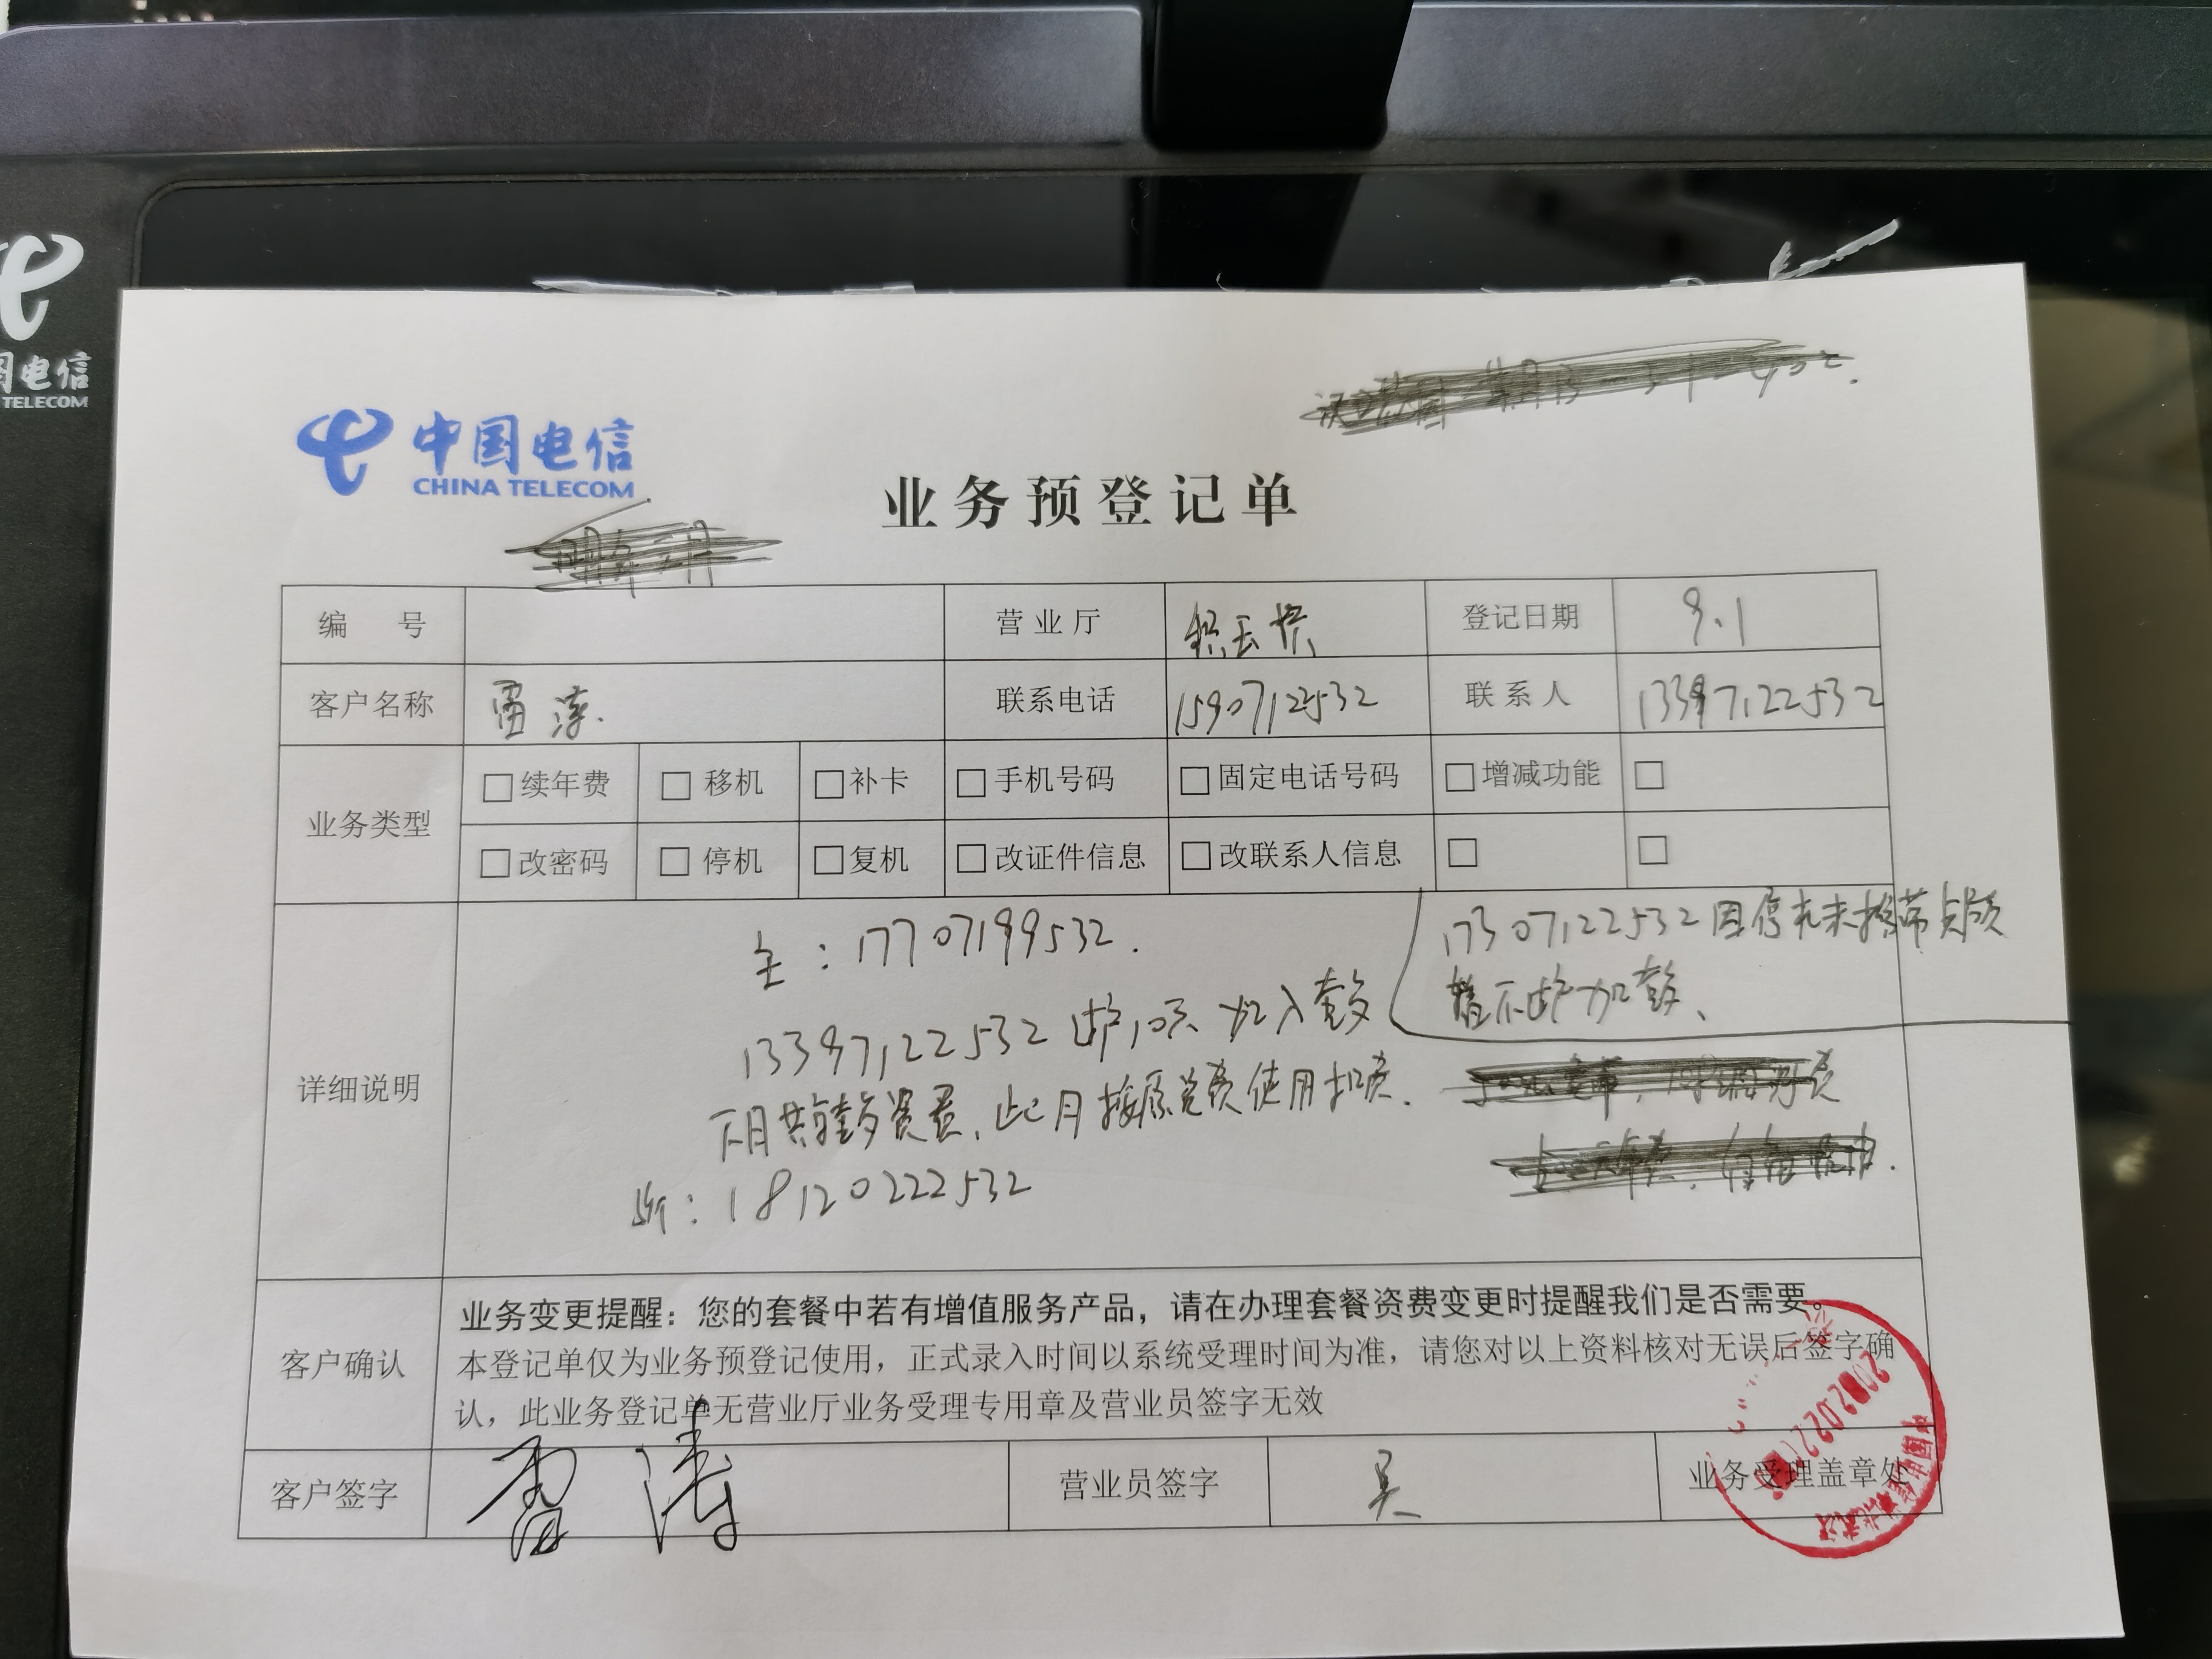 中国电信
CHINA TELECOM
国电信
TELECOM
业务预登记单
编 号
营业厅
登记日期 9.1
客户名称 雷涛.
联系电话 15907122532
联系人 13397122532
业务类型
□续年费 □移机 □补卡 □手机号码 □固定电话号码 □增减功能 □
□改密码 □停机 □复机 □改证件信息 □改联系人信息 □ □
详细说明
主：17707199532.
17307122532因停机未携带
暂不 加套餐、
13397122532 加入套餐
下月共享套餐资费、此月按原资费使用扣费.
：18120222532
客户确认
业务变更提醒：您的套餐中若有增值服务产品，请在办理套餐资费变更时提醒我们是否需要。
本登记单仅为业务预登记使用，正式录入时间以系统受理时间为准，请您对以上资料核对无误后签字确
认，此业务登记单无营业厅业务受理专用章及营业员签字无效
客户签字 雷涛
营业员签字 吴
业务受理盖章处